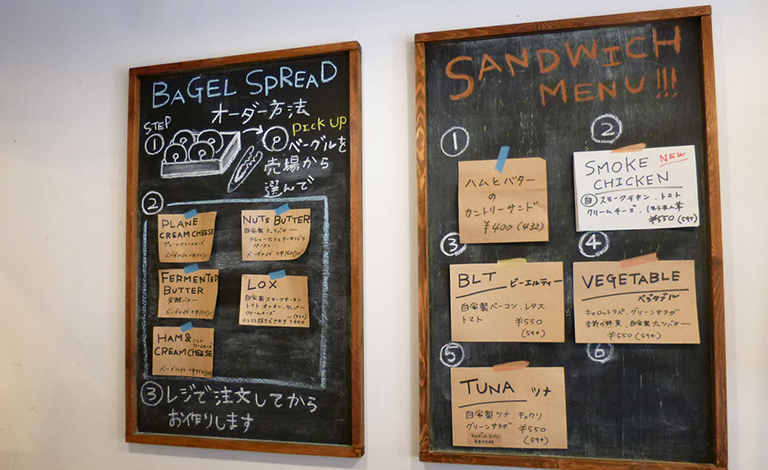 BAGEL SPREAD
オーダー方法
STEP
①
PICK UP
ベーグルを
売場から
選んで
②
PLANE
CREAM CHEESE
プレーンクリームチーズ
NUTS BUTTER
自家製ナッツバター
FERMENTED
BUTTER
発酵バター
LOX
自家製スモークサーモン
トマト
クリームチーズ
HAM &
CREAM CHEESE
③ レジで注文してから
お作りします
SANDWICH
MENU!!!
①
ハムとバター
の
カントリーサンド
¥400 (432)
②
SMOKE NEW
CHICKEN
自 スモークチキン、トマト
クリームチーズ、
¥550 (594)
③
BLT ビーエルティー
自家製ベーコン、レタス
トマト
¥550
(594)
④
VEGETABLE
ベジタブル
キャロットラペ、グリーンサラダ
季節の野菜、自家製ナッツバター
¥550 (594)
⑤
TUNA ツナ
自家製ツナ キュウリ
グリーンサラダ
¥550
(594)
⑥